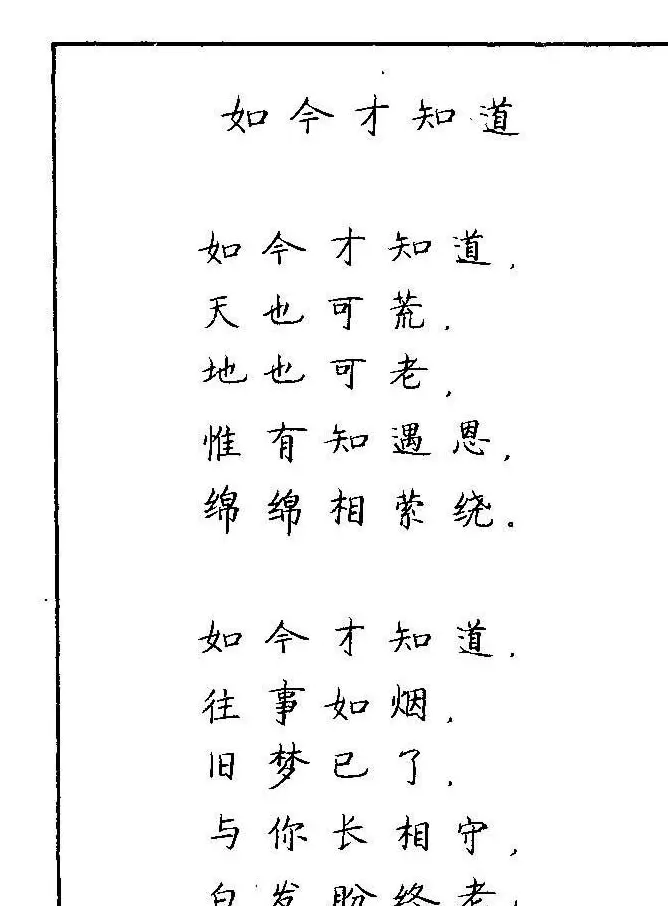 如今才知道
如今才知道，
天也可荒，
地也可老，
惟有知遇恩，
绵绵相萦绕。
如今才知道，
往事如烟，
旧梦已了，
与你长相守，
白发盼终老，